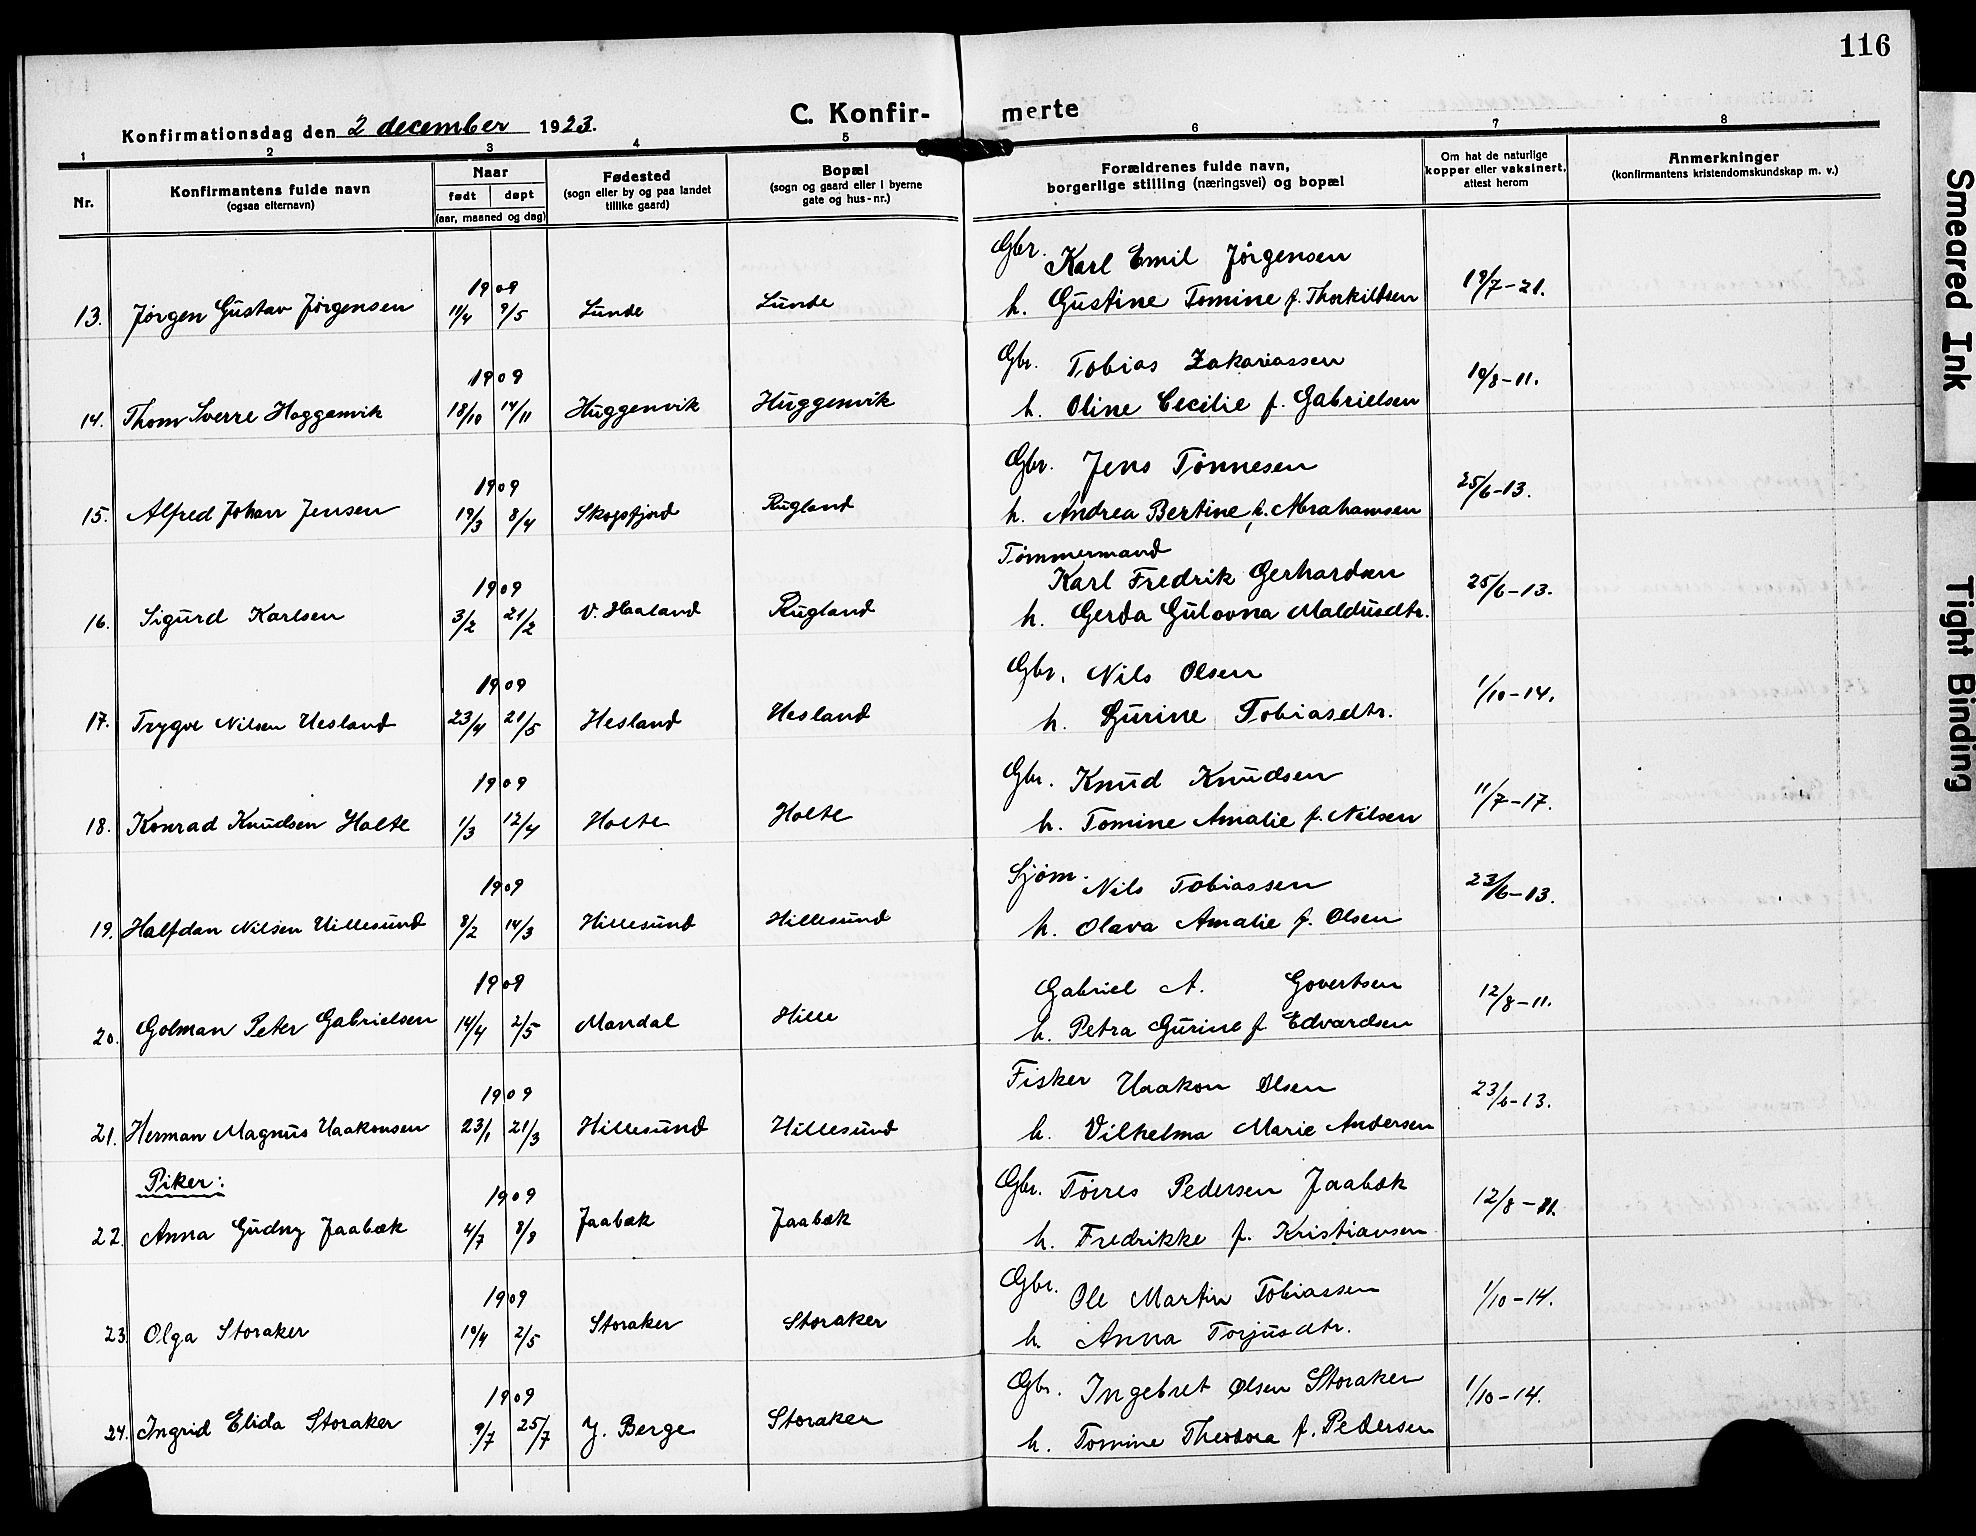 116
Konfirmationsdag den 2 december 1923. C. Konfirmerte
1 2 3 4 5 6 7 8
Nr.
Konfirmantens fulde navn
(ogsaa efternavn)
Naar
født døpt
(aar, maaned og dag)
Fødested
(sogn eller by og paa landet
tillike gaard)
Bopæl
(sogn og gaard eller i byerne
gate og hus-nr.)
Forældrenes fulde navn,
borgerlige stilling (næringsvei) og bopæl
Om hat de naturlige
kopper eller vaksinert.
attest herom
Anmerkninger
(konfirmantens kristendomskundskap m. v.)
1909 Gbr. Karl Emil Jørgensen
13. Jørgen Gustav Jørgensen 11/4 9/5 Lunde Lunde h. Gustine Tomine f. Thorkildsen 19/7-21.
1909 Gbr. Tobias Zakariassen
14. Thom Sverre Haggenvik 18/10 14/11 Huggenvik Huggenvik h. Oline Cecilie f. Gabrielsen 19/8-11.
1909 Gbr. Jens Tønnesen
15. Alfred Johan Jensen 19/3 8/4 Skogsfjord Rugland h. Andrea Bertine f. Abrahamsen 25/6-13.
Tømmermand
1909 Karl Fredrik Gerhardsen
16. Sigurd Karlsen 3/2 21/2 V. Haaland Rugland h. Gerda Gulovna Maldusdtr. 25/6-13.
1909 Gbr. Nils Olsen
17. Trygve Nilsen Hesland 23/4 21/5 Hesland Hesland h. Gurine Tobiasdtr. 1/10-14.
1909 Gbr. Knud Knudsen
18. Konrad Knudsen Holte 1/3 12/4 Holte Holte h. Tomine Amalie f. Nilsen 11/7-17.
1909 Sjøm. Nils Tobiassen
19. Halfdan Nilsen Hillesund 8/2 14/3 Hillesund Hillesund h. Olava Amalie f. Olsen 23/6-13.
1909 Gabriel A. Govertsen
20. Golman Peter Gabrielsen 14/4 2/5 Mandal Hille h. Petra Gurine f. Edvardsen 12/8-11.
1909 Fisker Haakon Olsen
21. Herman Magnus Haakonsen 23/1 21/3 Hillesund Hillesund h. Vilhelma Marie Andersen 23/6-13.
Piker:
1909 Gbr. Tørres Pedersen Jaabæk
22. Anna Gudny Jaabæk 4/7 8/8 Jaabæk Jaabæk h. Fredrikke f. Kristiansen 12/8-11.
1909 Gbr. Ole Martin Tobiassen
23 Olga Storaker 19/4 2/5 Storaker Storaker h. Anna Torjusdtr. 1/10-14.
1909 Gbr. Ingebret Olsen Storaker
24. Ingrid Elida Storaker 9/7 25/7 Y. Berge Storaker h. Tomine Theodora f. Pedersen 1/10-14.
Smeared Ink
Tight Binding